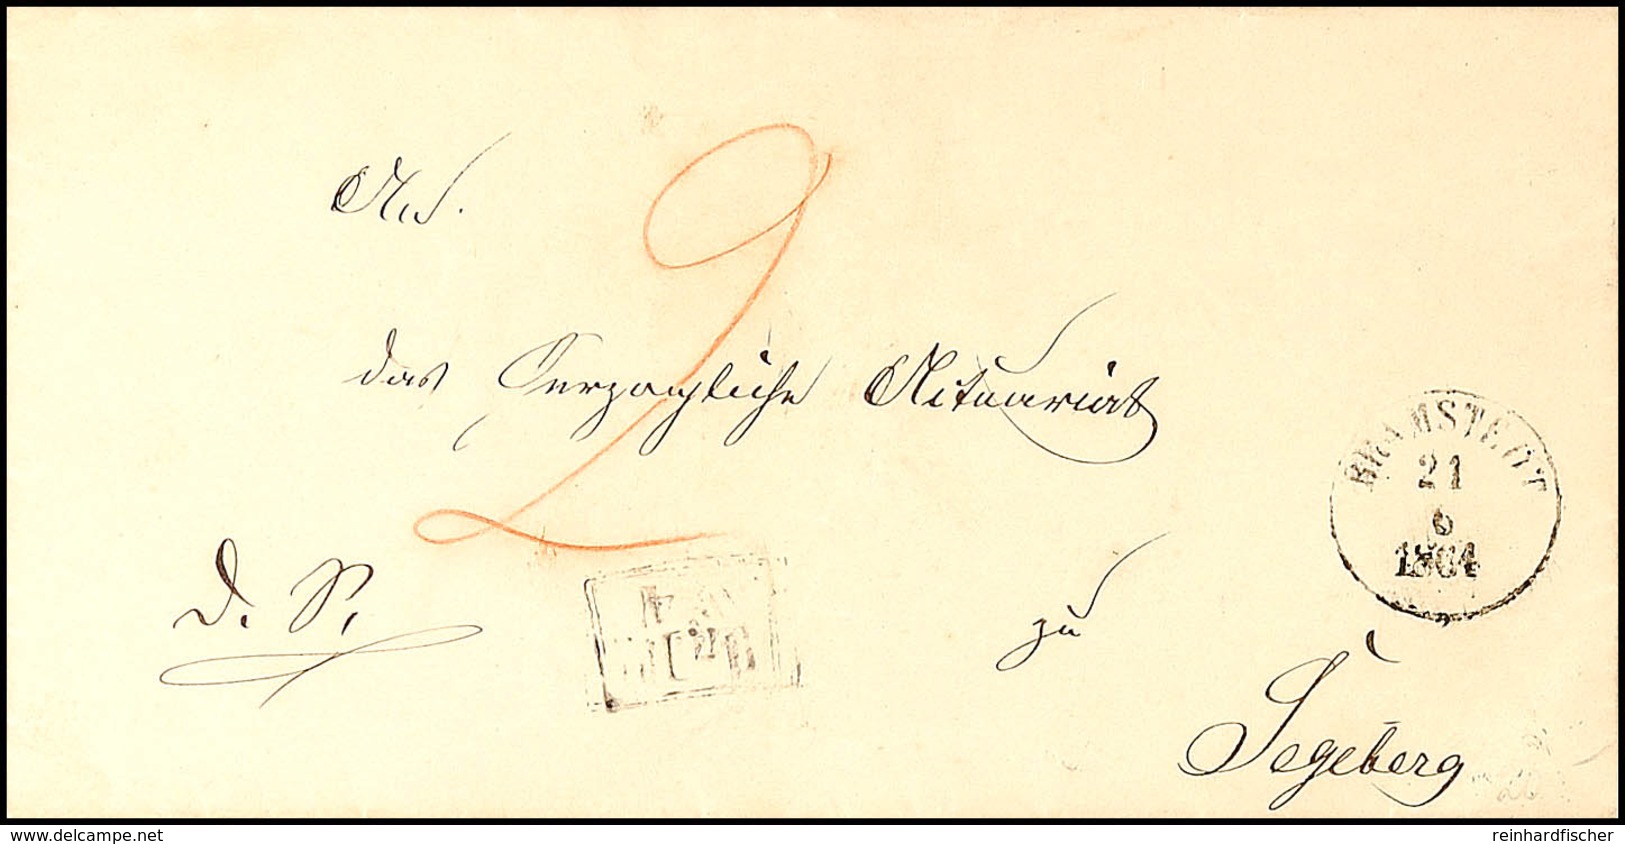 An
2
das Herzogliche Actuariat
BRAMSTEDT
21
6
1864
D. S.
zu
Segeberg
www.delcampe.net
reinhardfischer